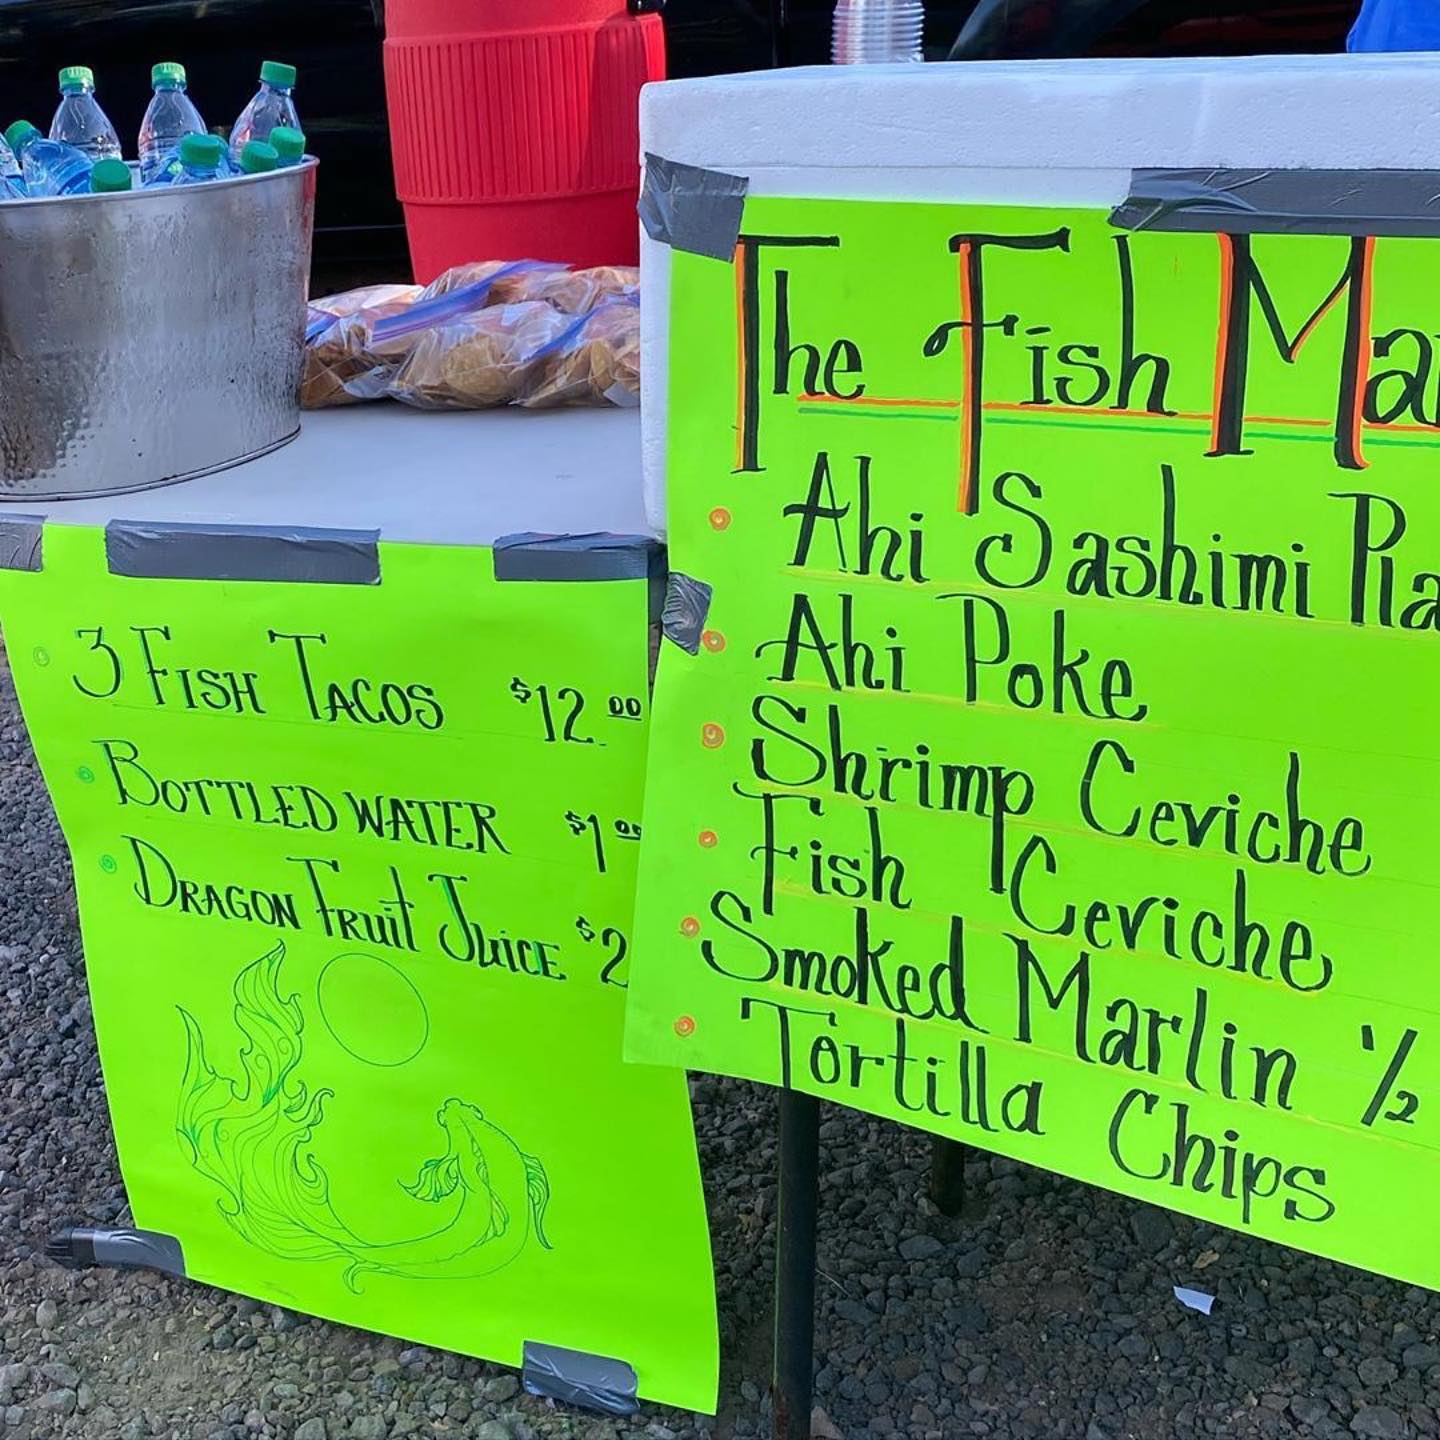 3 FISH TACOS $12.00
BOTTLED WATER $1.00
DRAGON FRUIT JUICE $2
The Fish Ma
Ahi Sashimi Pla
Ahi Poke
Shrimp Ceviche
Fish Ceviche
Smoked Marlin 1/2
Tortilla Chips